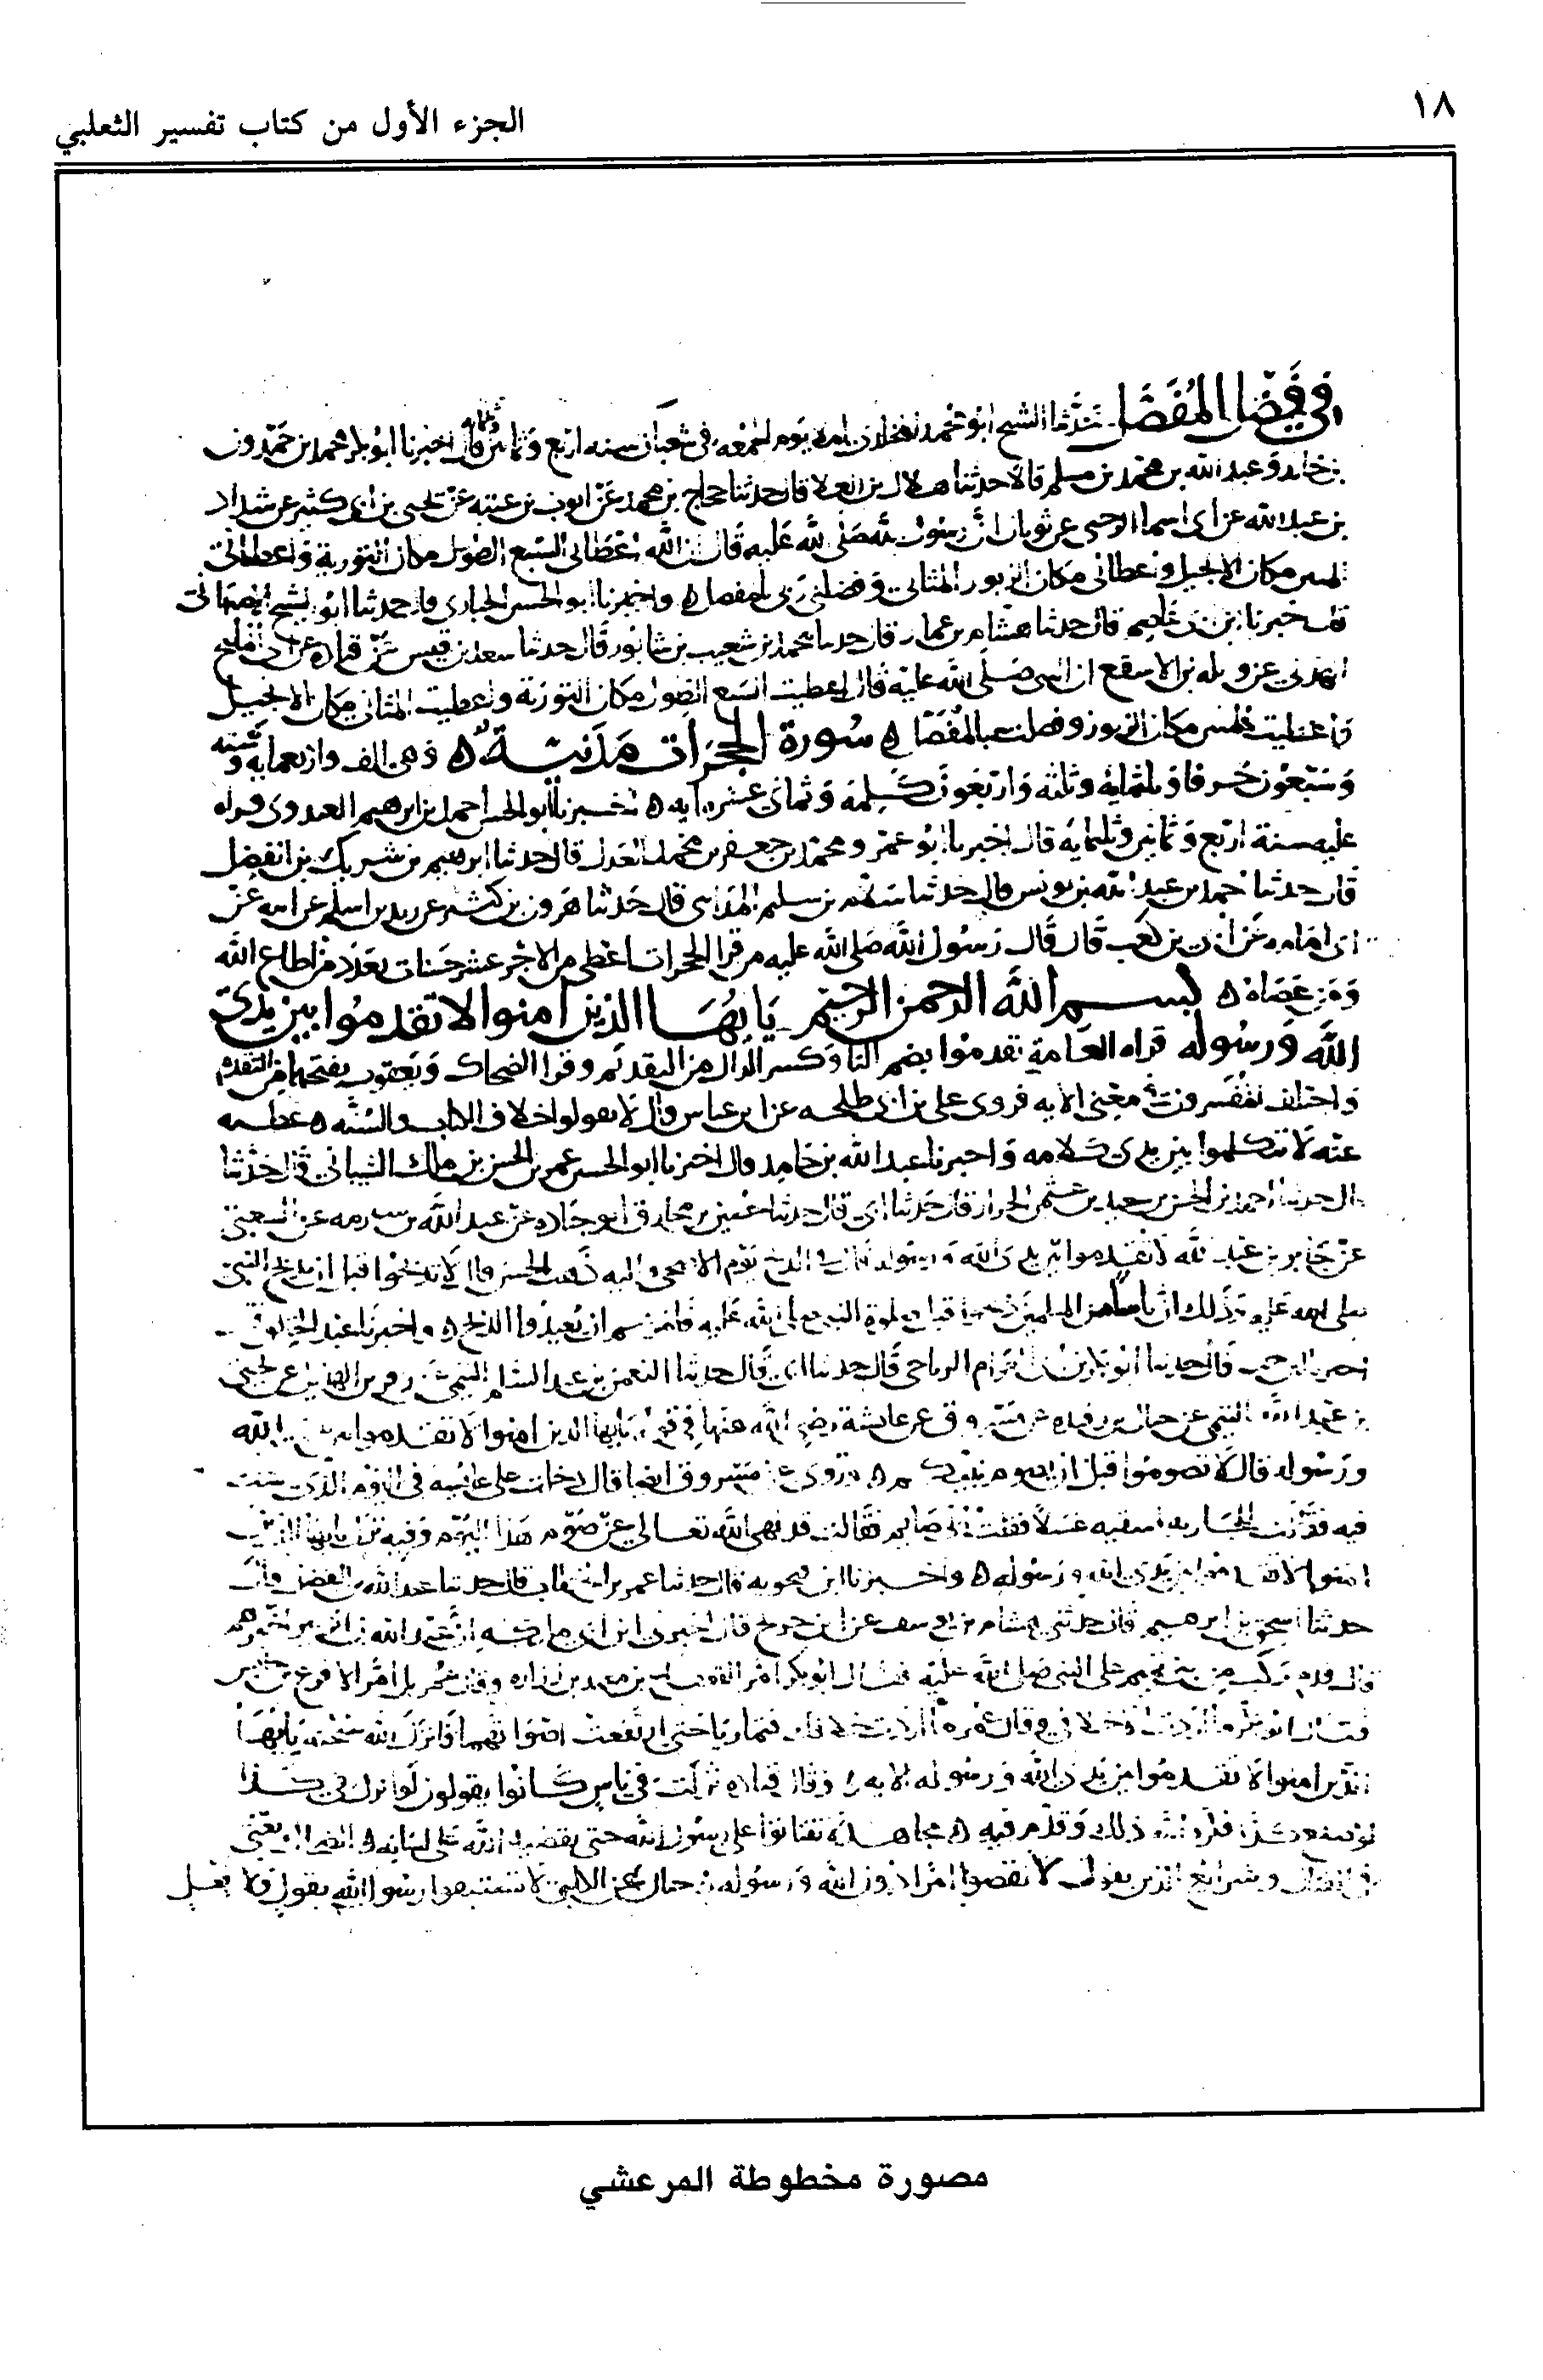 ١٨
الجزء الأول من كتاب تفسير الثعلبي
في فضل المفصل حدثنا الشيخ ابو محمد املا يوم الجمعه في شعبان سنه اربع وثمانين اخبرنا ابو محمد بن حمدون
بن خالد وعبد الله بن محمد بن مسلم قالا حدثنا هلال بن العلا قال حدثنا حجاج بن محمد عن ايوب بن عتبه عن يحيى بن ابي كثير عن شداد
بن عبد الله عن ابي اسما الرحبي عن ثوبان ان رسول الله صلى الله عليه قال ان الله اعطاني السبع الطول مكان التورية واعطاني
المين مكان الانجيل واعطاني مكان الزبور المثاني وفضلني ربي بالمفصل ه واخبرنا ابو الحسن الخبازي قال حدثنا ابو الشيخ الاصبهاني
قال اخبرنا ابن ابي عاصم قال حدثنا هشام بن عمار قال حدثنا محمد بن شعيب بن شابور قال حدثنا سعيد بن قيس عن قتاده عن ابي المليح
الهذلي عن واثله بن الاسقع ان النبي صلى الله عليه قال اعطيت السبع الطول مكان التورية واعطيت المثاني مكان الانجيل
واعطيت المين مكان الزبور وفضلت بالمفصل ه سورة الحجرات مدنية ه وهي الف واربعمايه وستة
وسبعون حرفا وثلثمايه وثلثه واربعون كلمة وثماني عشره ايه ه اخبرنا ابو الحسن احمد بن ابرهيم العبدوي قراه
عليه سنة اربع وثمانين وثلثمايه قال اخبرنا ابو عمرو محمد بن جعفر بن محمد العدل قال حدثنا ابرهيم بن شريك بن الفضل
قال حدثنا احمد بن عبد الله بن يونس قال حدثنا سلام بن سليم المدايني قال حدثنا هرون بن كثير عن زيد بن اسلم عن ابيه عن
ابي امامه عن ابي بن كعب قال قال رسول الله صلى الله عليه من قرا الحجرات اعطي من الاجر عشر حسنات بعدد من اطاع الله
ومن عصاه ه بسم الله الرحمن الرحيم يايها الذين امنوا لا تقدموا بين يدي
الله ورسوله قراه العامة تقدموا بضم التا وكسر الدال من التقديم وقرا الضحاك ويعقوب بفتحهما من التقدم
واختلف المفسرون في معنى الايه فروى علي بن ابي طلحه عن ابن عباس قال لا تقولوا خلاف الكتاب والسنه ه عطيه
عنه لا تتكلموا بين يدي كلامه واخبرنا عبد الله بن حامد قال اخبرنا ابو الحسن عمر بن الحسن بن مالك الشيباني قال حدثنا
قال حدثنا احمد بن الحسن بن سعيد بن عثمن الخزاز قال حدثنا ابي قال حدثنا حصين بن مخارق ابو جناده عن عبد الله عن الشعبي
عن جابر بن عبد الله لا تقدموا بين يدي الله ورسوله قال في الذبح يوم الاضحى واليه ذهب الحسن قال لا تذبحوا قبل ان يذبح النبي
صلى الله عليه وذلك ان ناسا من المسلمين ذبحوا قبل صلوة النبي صلى الله عليه فامرهم ان يعيدوا الذبح ه واخبرنا عبد الخالق
قال حدثنا ابو بكر بن ابي العوام الرياحي قال حدثنا ابي قال حدثنا النعمن بن عبد السلام التيمي عن زفر بن الهذيل عن يحيى
بن عبد الله التيمي عن حبال بن رفيده عن مسروق عن عايشة رضي الله عنها في قوله يايها الذين امنوا لا تقدموا بين يدي الله
ورسوله قال لا تصوموا قبل ان يصوم نبيكم ه وروى عن مسروق ايضا قال دخلت على عائشه في اليوم الذي يشك
فيه فقالت للجاريه اسقيه عسلا فقلت اني صايم فقالت قد نهى الله تعالى عن صوم هذا اليوم وفيه نزلت يايها الذين
امنوا لا تقدموا بين يدي الله ورسوله ه واخبرنا ابن فنجويه قال حدثنا عمر بن الخطاب قال حدثنا عبد الله بن الفضل قال
حدثنا اسحق بن ابرهيم قال حدثني هشام بن يوسف عن ابن جريج قال اخبرني ابن ابي مليكه ان عبد الله بن الزبير اخبرهم
قال قدم ركب من بني تميم على النبي صلى الله عليه فقال ابو بكر امر القعقاع بن معبد بن زراره وقال عمر بل امر الاقرع بن حابس
فقال ابو بكر ما اردت الا خلافي وقال عمر ما اردت خلافك فتماريا حتى ارتفعت اصواتهما فانزل الله سبحنه يايها
الذين امنوا لا تقدموا بين يدي الله ورسوله الايه ه وقال قتاده نزلت في ناس كانوا يقولون لو انزل في كذا
فكره الله ذلك وقدم فيه ه مجاهد لا تفتاتوا على رسول الله حتى يقضي الله على لسانه ه الضحاك يعني
في القتال وشرائع الدين يقول لا تقضوا امرا دون الله ورسوله ه حبان عن الكلبي لا تستبقوا رسول الله بقول ولا بفعل
مصورة مخطوطة المرعشي